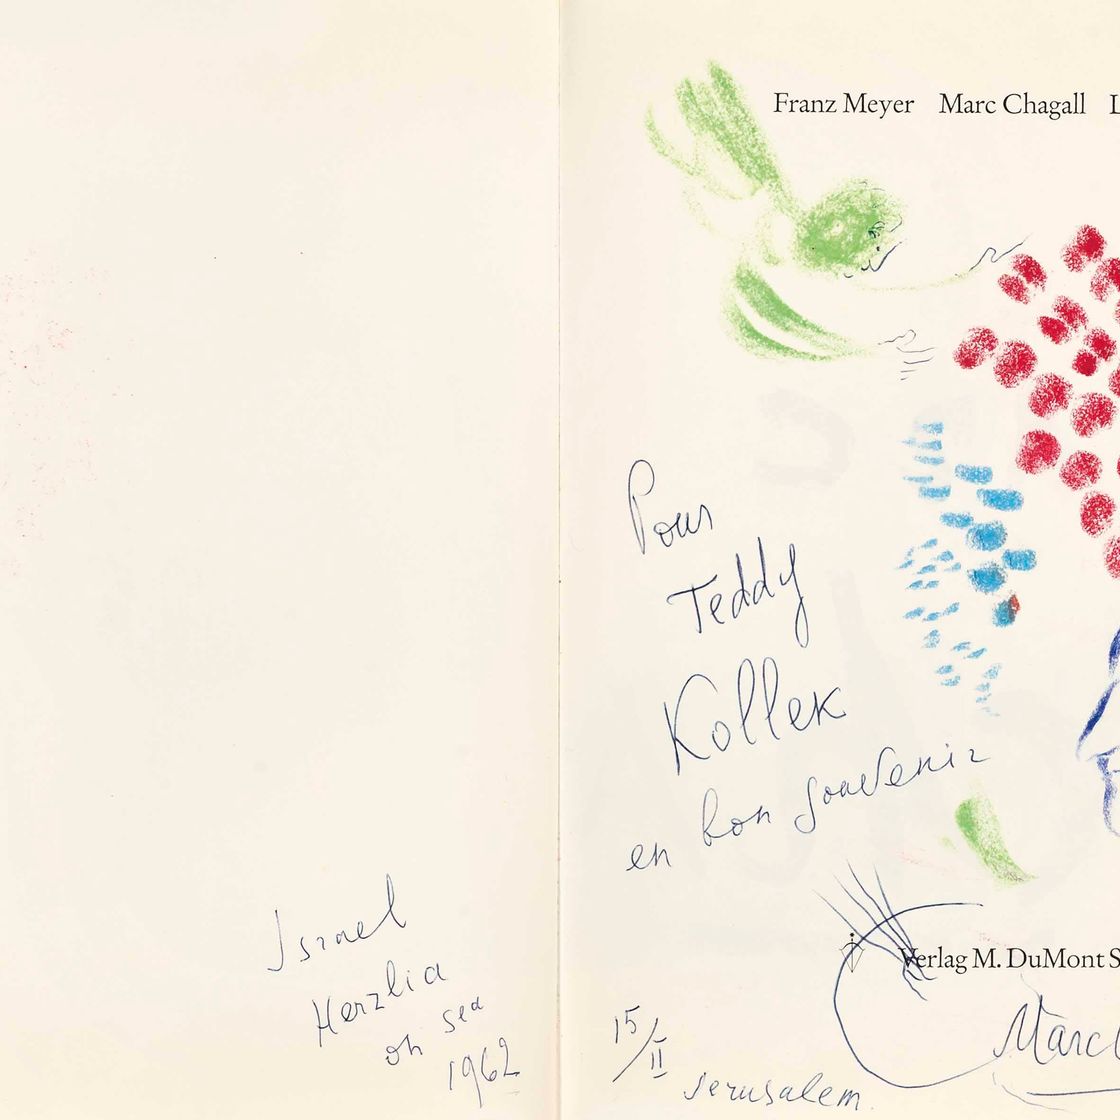 Israel
Herzlia
on sea
1962
Franz Meyer Marc Chagall L
Pour
Teddy
Kollek
en bon souvenir
Verlag M. DuMont S
Marc
15/II Jerusalem.